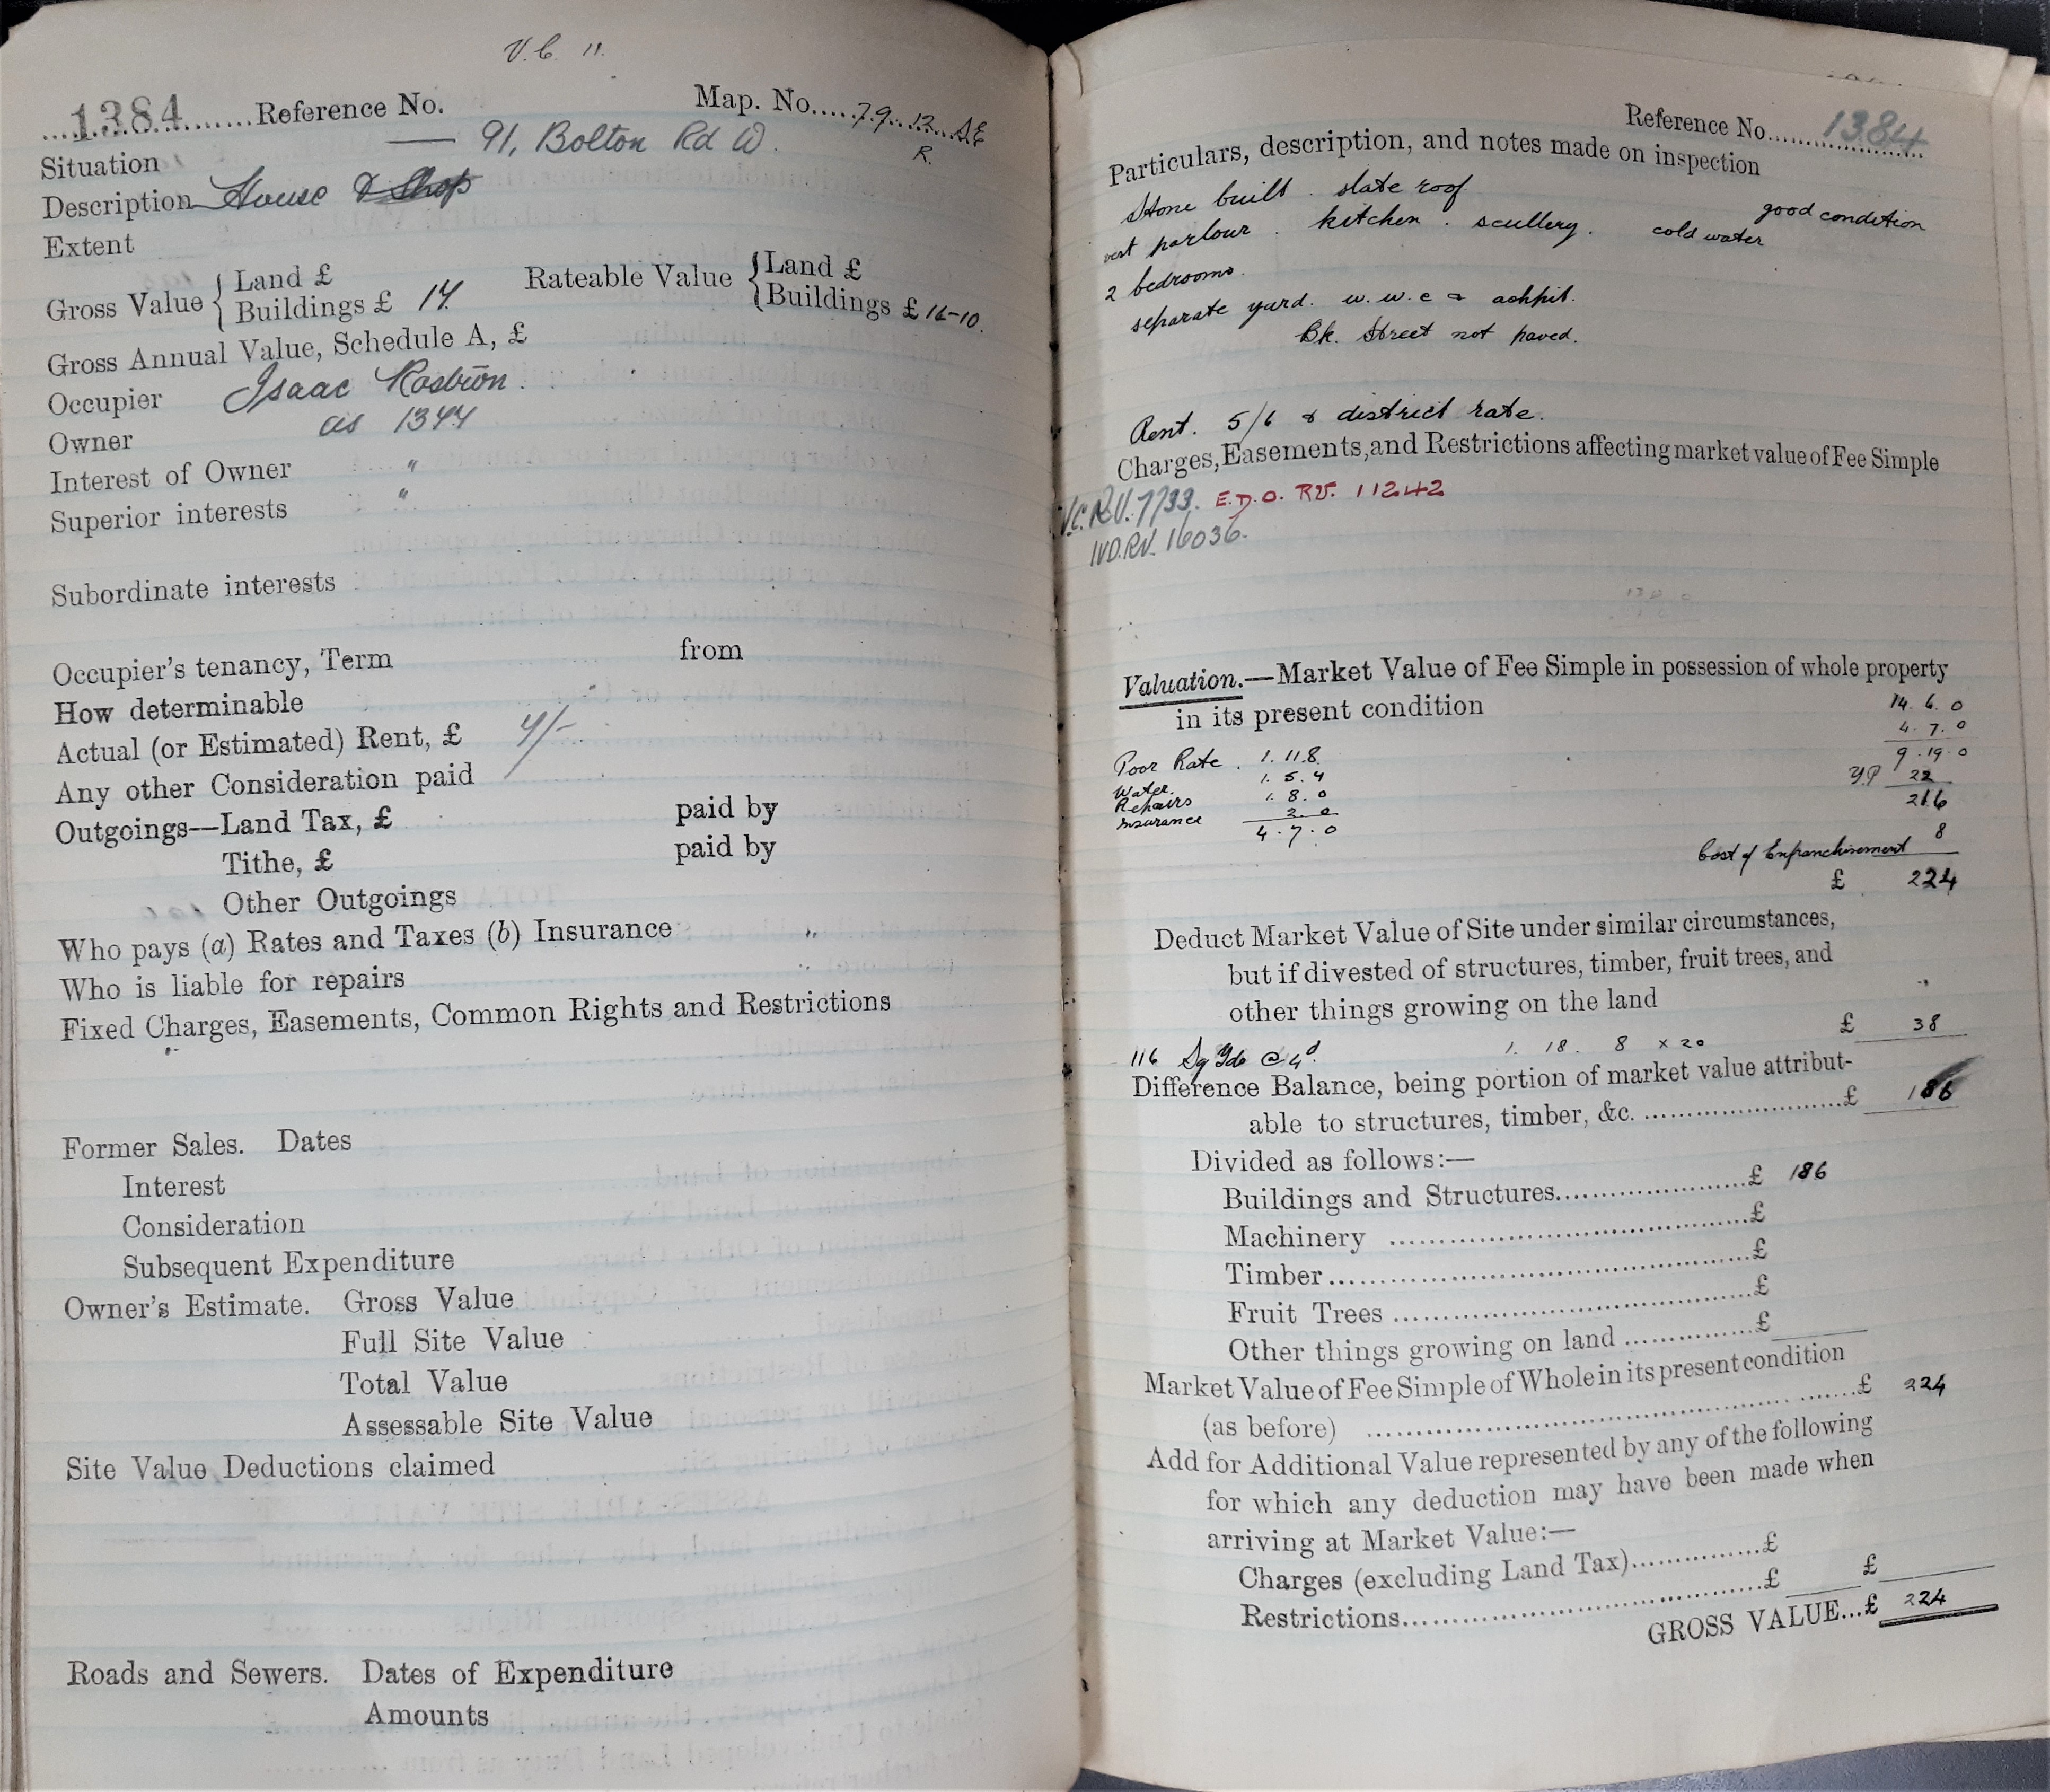 V. C. 11.
1384 Reference No. Map. No. 79. 12. SE
R.
Situation — 91, Bolton Rd W.
Description House & Shop
Extent
Gross Value { Land £ Rateable Value { Land £
Buildings £ 14 Buildings £
Gross Annual Value, Schedule A, £
Occupier Isaac Rostron.
Owner as 1344
Interest of Owner "
Superior interests "
Subordinate interests
Occupier's tenancy, Term from
How determinable
Actual (or Estimated) Rent, £ 4/-
Any other Consideration paid
Outgoings—Land Tax, £ paid by
Tithe, £ paid by
Other Outgoings
Who pays (a) Rates and Taxes (b) Insurance "
Who is liable for repairs "
Fixed Charges, Easements, Common Rights and Restrictions
Former Sales. Dates
Interest
Consideration
Subsequent Expenditure
Owner's Estimate. Gross Value
Full Site Value
Total Value
Assessable Site Value
Site Value Deductions claimed
Roads and Sewers. Dates of Expenditure
Amounts
Reference No. 1384
Particulars, description, and notes made on inspection
Stone built. slate roof good condition
vest parlour. kitchen. scullery. cold water
2 bedrooms.
separate yard. w.w.c & ashpit.
Bk. Street not paved.
Rent. 5/6 & district rate.
Charges, Easements, and Restrictions affecting market value of Fee Simple
V.C. R.V. 7733. E.D.O. RV. 11242
IVD. RV. 16036.
Valuation.—Market Value of Fee Simple in possession of whole property
in its present condition 14. 6. 0
4. 7. 0
Poor Rate. 1. 11. 8 9. 19. 0
Water. 1. 5. 4 YP 22
Repairs 1. 8. 0 216
Insurance 2. 0
4. 7. 0
Cost of Enfranchisement 8
£ 224
Deduct Market Value of Site under similar circumstances,
but if divested of structures, timber, fruit trees, and
other things growing on the land £ 38
116 Sq Yds @ 4d. 1. 18. 8 × 20
Difference Balance, being portion of market value attribut-
able to structures, timber, &c. £ 186
Divided as follows:—
Buildings and Structures £ 186
Machinery £
Timber £
Fruit Trees £
Other things growing on land £
Market Value of Fee Simple of Whole in its present condition
(as before) £ 224
Add for Additional Value represented by any of the following
for which any deduction may have been made when
arriving at Market Value:—
Charges (excluding Land Tax) £
Restrictions £ £
GROSS VALUE...£ 224